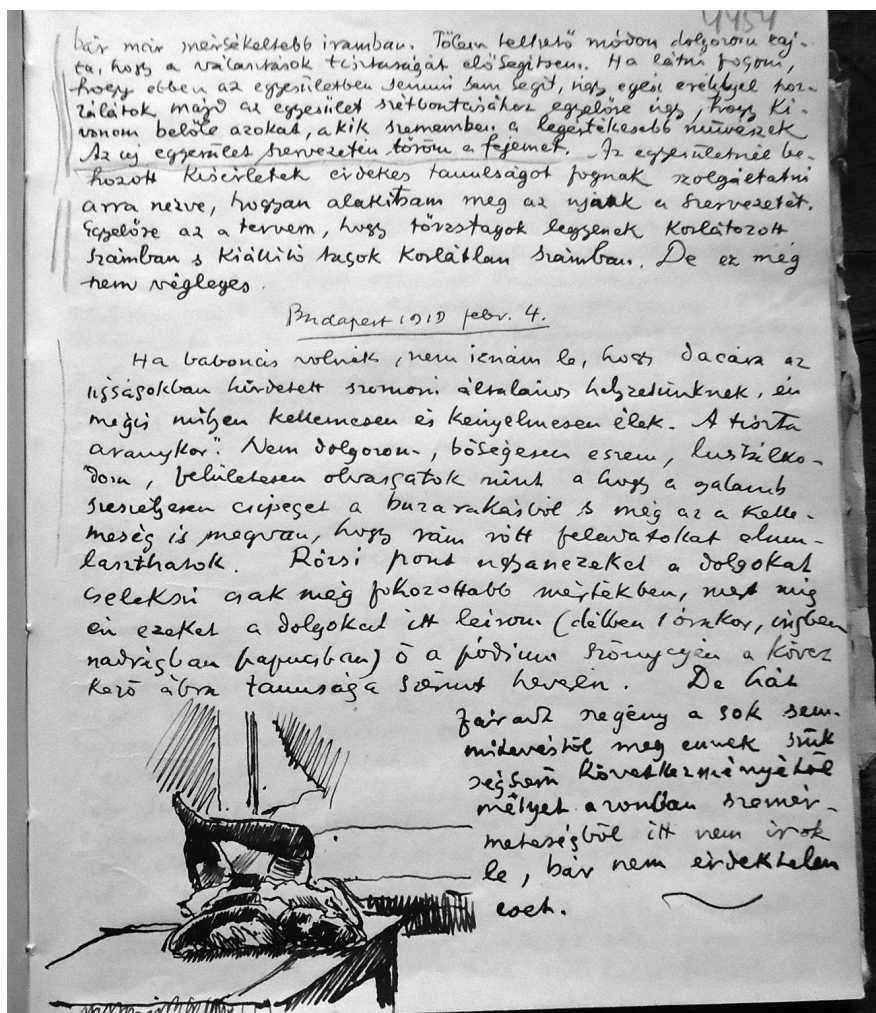 4454
bár már mérsékeltebb iramban. Tőlem telhető módon dolgozom raj-
ta, hogy a választások tisztaságát elősegítsem. Ha látni fogom,
hogy ebben az egyesületben semmi sem segít, úgy egész eréllyel hoz-
zálátok majd az egyesület szétbontásához egyelőre úgy, hogy ki-
vonom belőle azokat, a kik szememben a legértékesebb művészek
Az új egyesület szervezetén töröm a fejemet. Az egyesületnél be-
hozott kisérletek érdekes tanulságot fognak szolgáltatni
arra nézve, hogyan alakítsam meg az ujnak a szervezetét.
Egyelőre az a tervem, hogy törzstagok legyenek korlátozott
számban s kiállító tagok korlátlan számban. De ez még
nem végleges.
Budapest 1919 febr. 4.
Ha babonás volnék, nem irnám le, hogy dacára az
ujságokban hirdetett szomorú általános helyzetünknek, én
mégis milyen kellemesen és kényelmesen élek. A tiszta
aranykor". Nem dolgozom, bőségesen eszem, lustálko-
dom, felületesen olvasgatok mint a hogy a galamb
szeszélyesen csipeget a buzarakásból s még az a kelle-
meség is megvan, hogy rám rótt feladatokat elmu-
laszthatok. Rózsi pont ugyanezeket a dolgokat
cselekszi csak még fokozottabb mértékben, mert míg
én ezeket a dolgokat itt leírom (délben 1 órakor, ingben
nadrágban papucsban) ő a pódium szőnyegén a követ
kező ábra tanusága szerint hever. De hát
fáradt szegény a sok sem-
mitevéstől meg ennek szük
ségszerű következményétől
mélyet azonban szemér-
metességből itt nem irok
le, bár nem érdektelen
eset.